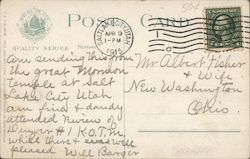 POST CARD
QUALITY SERIES
SALT LAKE CITY, UTAH
APR 9
1-PM
1915
Am sending this from
the great Mormon
temple at Salt
Lake City Utah
am fine & dandy
attended Review of
Denver #1 K.O.T.M.
while there & was well
pleased Will Barger
Mr Albert Fisher
& Wife
New Washington
Ohio.